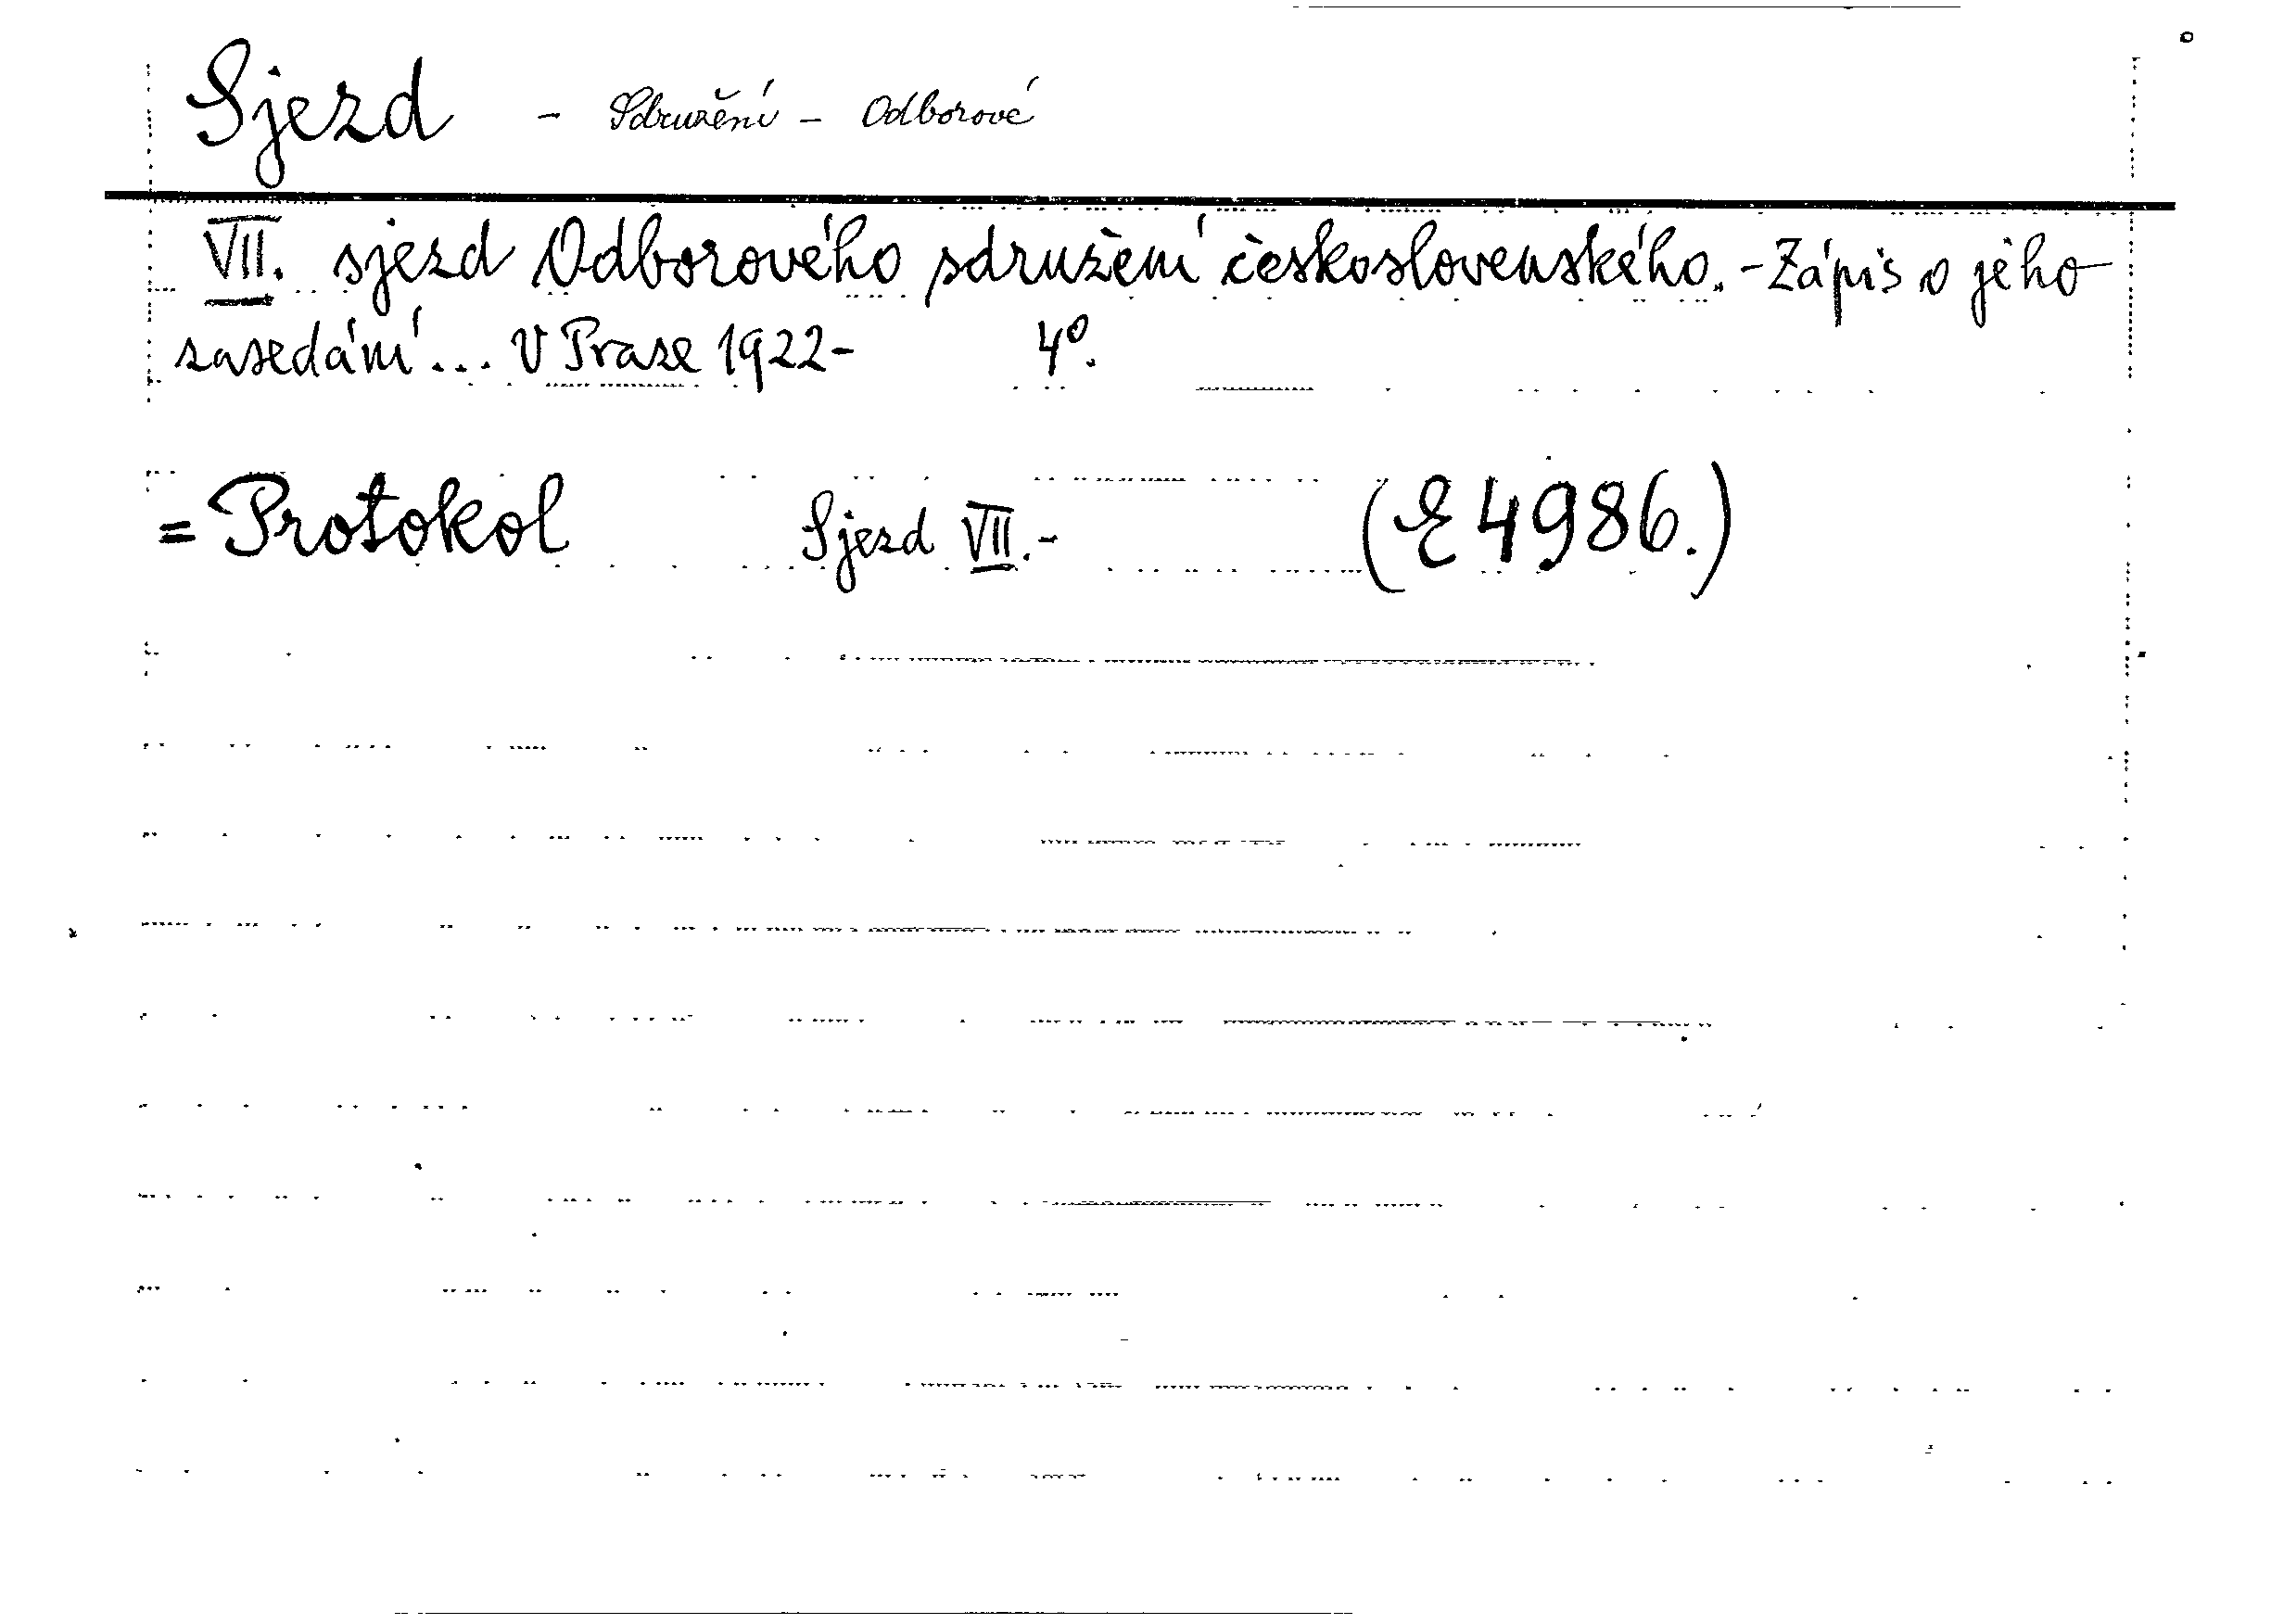 Sjezd - Sdružení - Odborové
VII. sjezd Odborového sdružení československého. - Zápis o jeho
zasedání ... V Praze 1922- 4º.
= Protokol Sjezd VII.- (E 4986.)